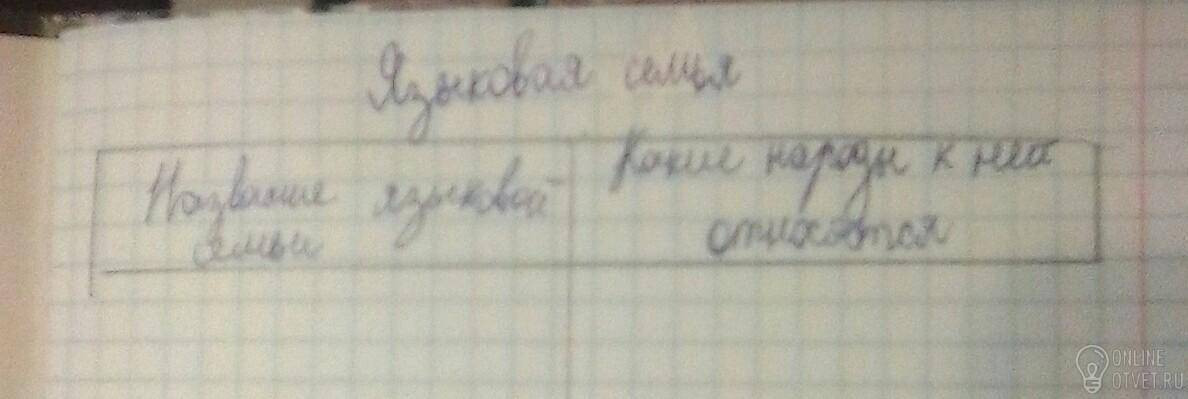 Языковая семья
Название языковой
семьи
Какие народы к ней
относятся
ONLINE
OTVET.RU